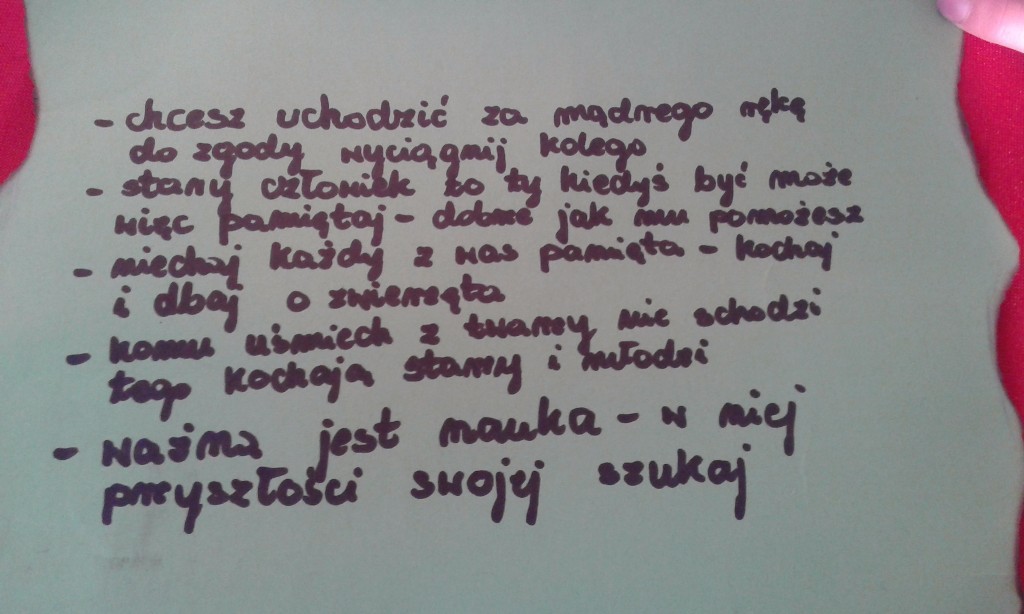 - chcesz uchodzić za mądrego rękę
do zgody wyciągnij kolego
- stary człowiek to ty kiedyś być może
więc pamiętaj - dobrze jak mu pomożesz
- niechaj każdy z nas pamięta - kochaj
i dbaj o zwierzęta
- komu uśmiech z twarzy nie schodzi
tego kochają starzy i młodzi
- ważna jest nauka - w niej
przyszłości swojej szukaj